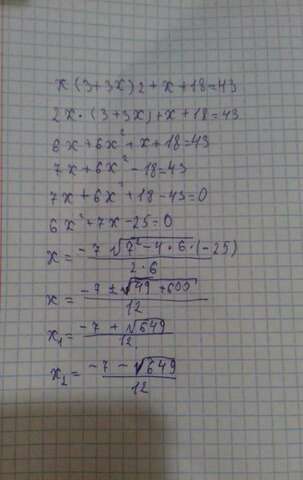 x(3+3x)2+x+18=43
2x·(3+3x)+x+18=43
6x+6x²+x+18=43
7x+6x²-18=43
7x+6x²+18-43=0
6x²+7x-25=0
x=\frac{-7\sqrt{7²-4·6·(-25)}}{2·6}
x=\frac{-7±\sqrt{49+600}}{12}
x₁=\frac{-7+\sqrt{649}}{12}
x₂=\frac{-7-\sqrt{649}}{12}